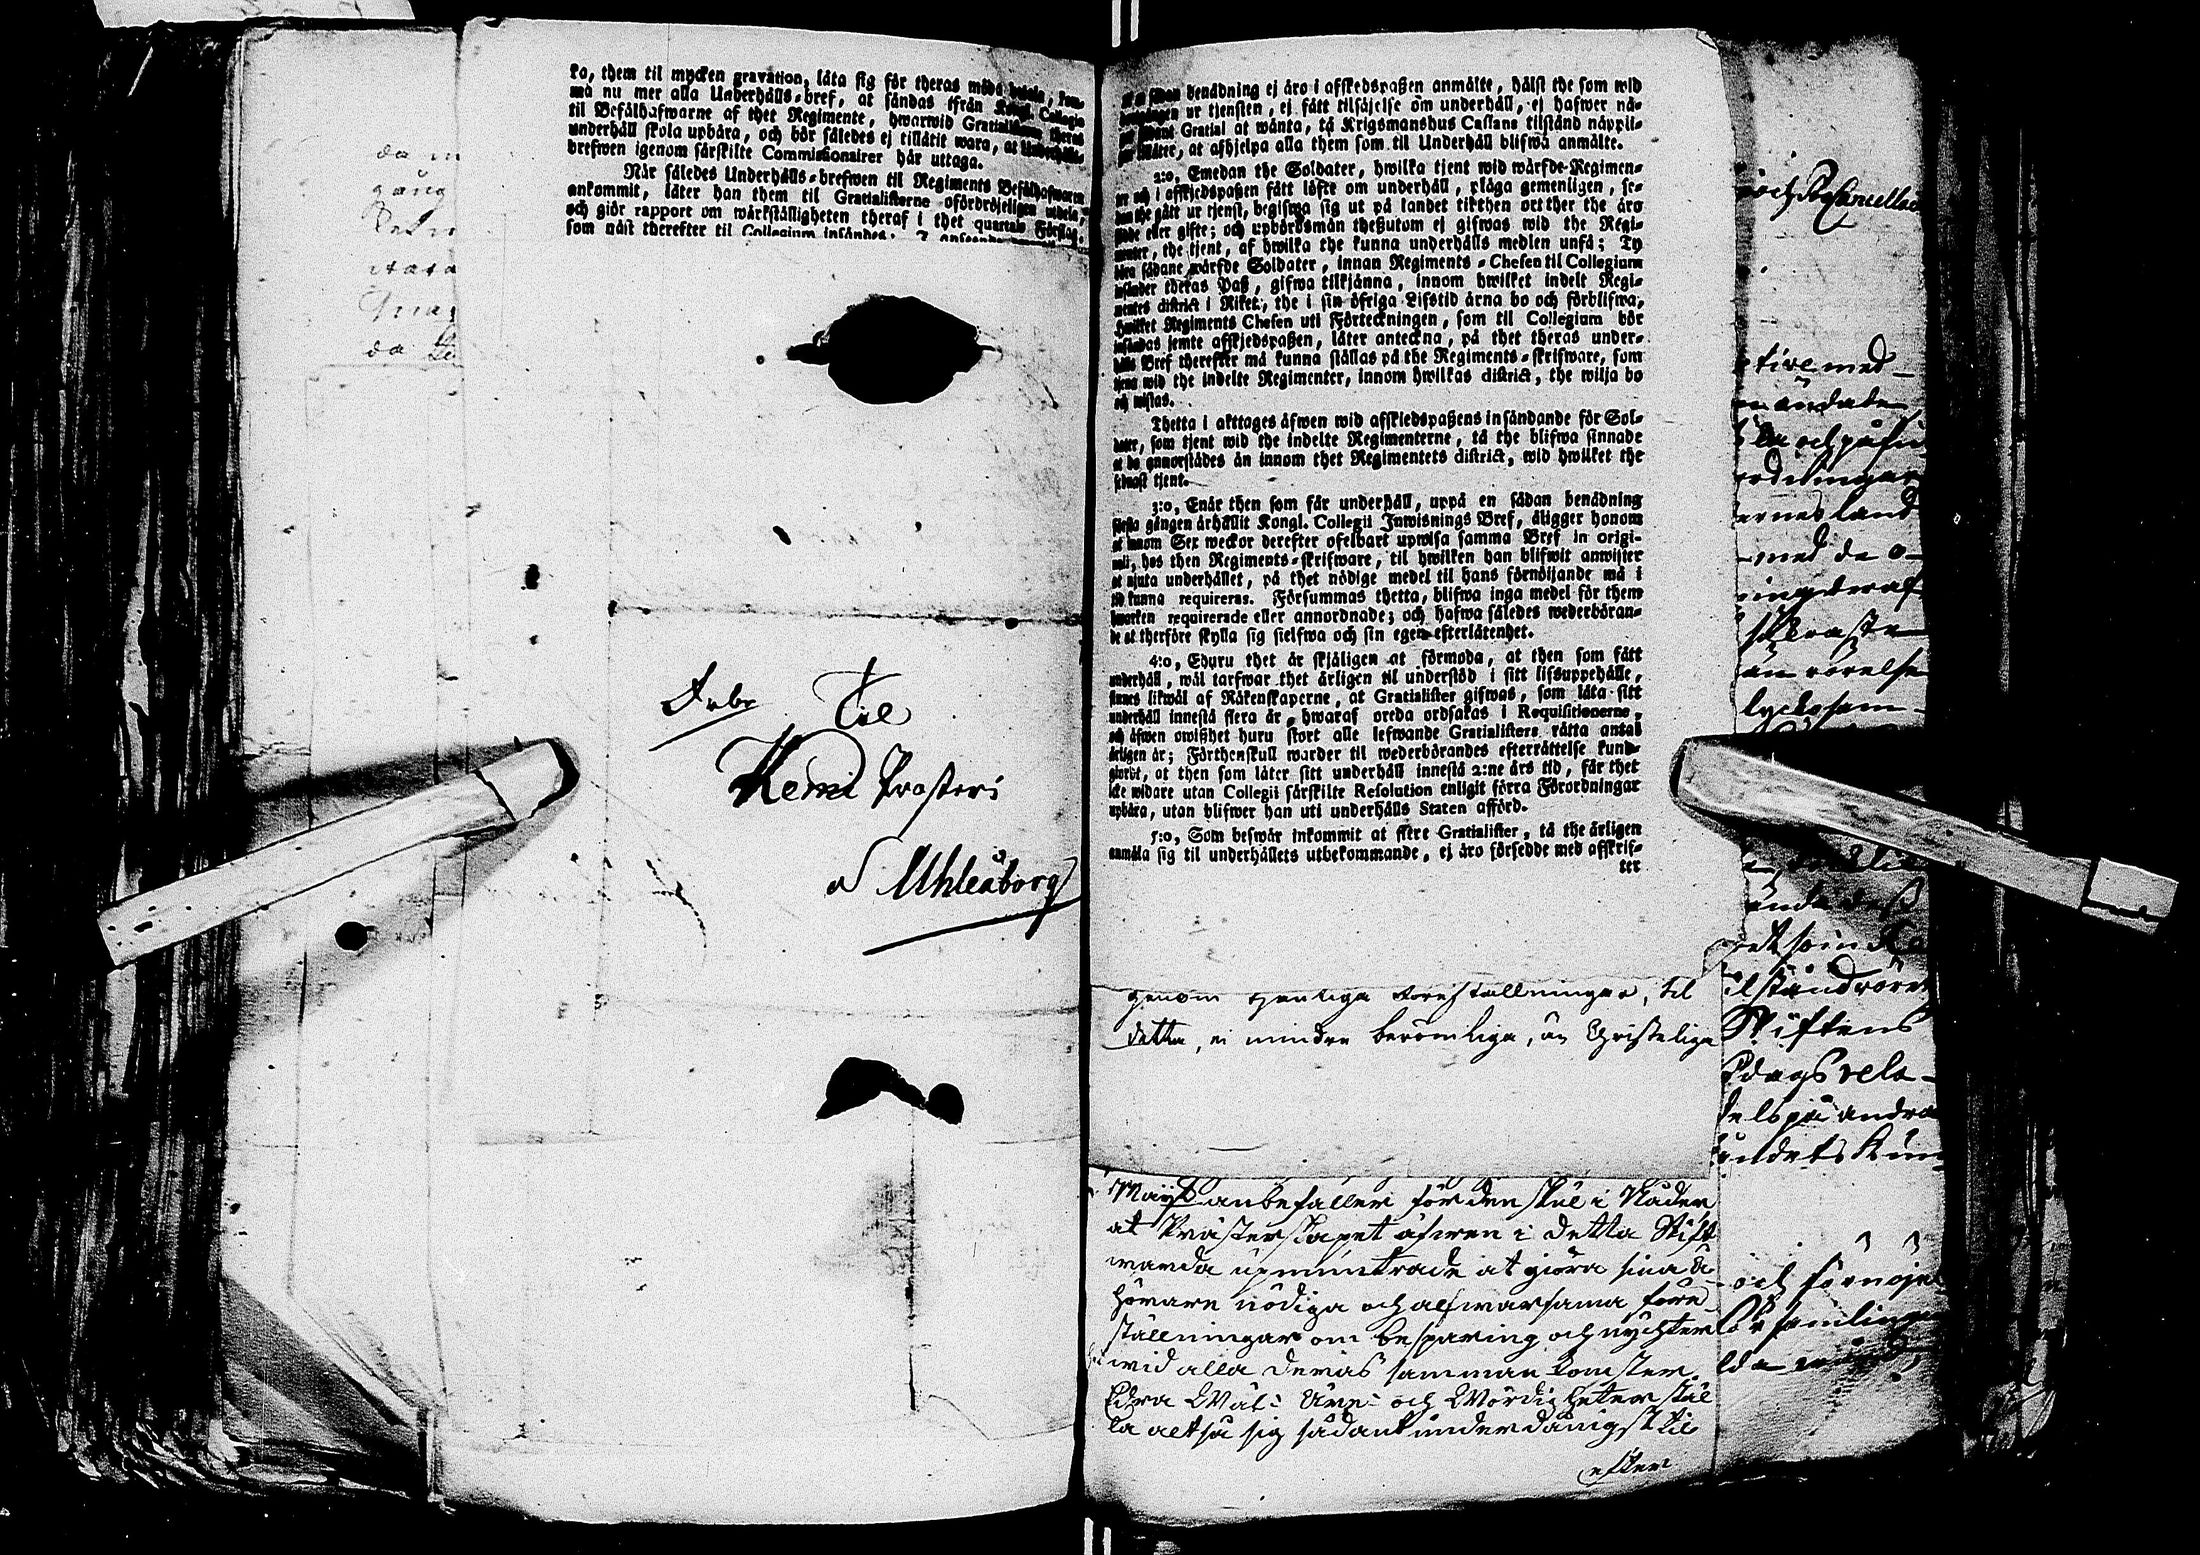 ka, them til mycken gravation, låta sig för theras möda betala, kom-
må nu mer alla Underhålls-bref, at sändas ifrån Kongl. Collegio
til Befälhafwarne af thet Regimente, hwarwid Gratialisterne theras
underhåll skola upbära, och bör således ej tillåtit wara, at Underhålls-
brefwen igenom särskilte Commissionairer här uttaga.
När således Underhålls-brefwen til Regiments Befälhafwaren
ankommit, låter han them til Gratialisterne ofördröjeligen utdela,
och giör rapport om wärkställigheten theraf i thet quartals Förslag,
som näst therefter til Collegium insändes.
Til
Kemi Prosteri
Uhleåborg
benådning ej äro i afskedspaßen anmälte, hälst the som wid
ur tjensten, ej fått tilsäjelse om underhåll, ej hafwer nå-
Gratial at wänta, tå Krigsmanshus Cassans tilstånd näppli-
at afhjelpa alla them som til Underhåll blifwa anmälte.
2:o, Emedan the Soldater, hwilka tjent wid wärfde Regimen-
ter och i afskjedspaßen fått löfte om underhåll, pläga gemenligen, se-
dan the gått ur tjenst, begifwa sig ut på landet til then ort ther the äro
födde eller gifte; och upbördsmän theßutom ej gifwas wid the Regi-
menter, the tjent, af hwilka the kunna underhålls medlen unfå; Ty
böra sådane wärfde Soldater, innan Regiments-Chefen til Collegium
insänder theras Paß, gifwa tilkjänna, innom hwilket indelt Regi-
mentes district i Riket, the i sin öfriga Lifstid ärna bo och förblifwa,
hwilket Regiments Chefen uti Förteckningen, som til Collegium bör
insändas jemte afskjedspaßen, låter anteckna, på thet theras under-
hålls Bref therefter må kunna ställas på the Regiments-skrifware, som
tjena wid the indelte Regimenter, innom hwilkas district, the wilja bo
och wistas.
Thetta i akttages äfwen wid afskiedspaßens insändande för Sol-
dater, som tjent wid the indelte Regimenterne, tå the blifwa sinnade
at bo annorstädes än innom thet Regimentets district, wid hwilket the
sednast tjent.
3:o, Enär then som får underhåll, uppå en sådan benådning
första gången ärhållit Kongl. Collegii Inwisnings Bref, åligger honom
at innom Sex weckor derefter ofelbart upwisa samma Bref in origi-
nali, hos then Regiments-skrifware, til hwilken han blifwit anwister
at njuta underhållet, på thet nödige medel til hans förnöijande må i
tid kunna requireras. Försummas thetta, blifwa inga medel för them
hwarken requirerade eller annordnade; och hafwa således wederböran-
de at therföre skylla sig sielfwa och sin egen efterlåtenhet.
4:o, Ehuru thet är skjäligen at förmoda, at then som fått
underhåll, wäl tarfwar thet årligen til understöd i sitt lifsuppehälle,
finnes likwäl af Räkenskaperne, at Gratialister gifwas, som låta sitt
underhåll innestå flera år, hwaraf oreda ordsakas i Requisitionerne,
och äfwen owißhet huru stort alle lefwande Gratialisters rätta antal
årligen är; Förthenskull warder til wederbörandes efterrättelse kund-
giordt, at then som låter sitt underhåll innestå 2:ne års tid, får thet
icke widare utan Collegii särskilte Resolution enligit förra Förordningar
upbära, utan blifwer han uti underhålls Staten afförd.
5:o, Som beswär inkommit at flere Gratialister, tå the årligen
anmäla sig til underhållets utbekommande, ej äro försedde med afskrif-
ter
genom tjenliga Föreställningar, til
detta, ei mindre berömliga, än Christeliga
Maij:t anbefaller för den skul i Nåder,
at Prästerskapet äfwen i detta Stift
warda upmuntrade at giöra sina Å-
hörare nödiga och alfwarsama före-
ställningar om besparing och nychter
wid alla deras sammankomster.
Edra Wäl- Äre- och Wördigheter stäl
la altså sig sådant underdånigst til
efter
ernes land
med de o-
ring deraf
än rörelse
Stiftens
på andra
och förnöje